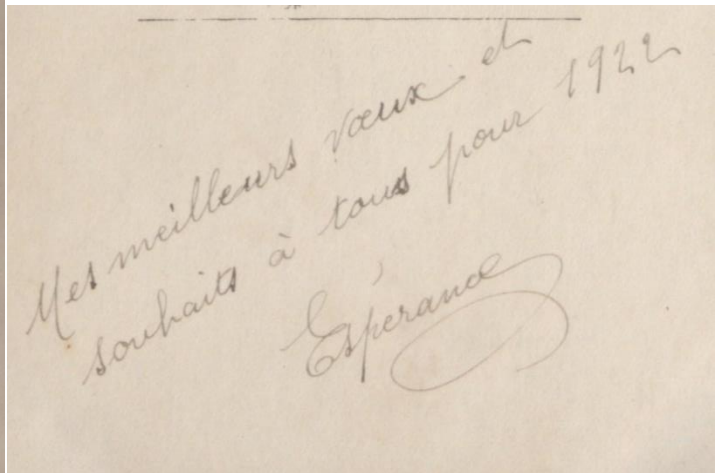 Mes meilleurs vœux et
souhaits à tous pour 1922
Espérance